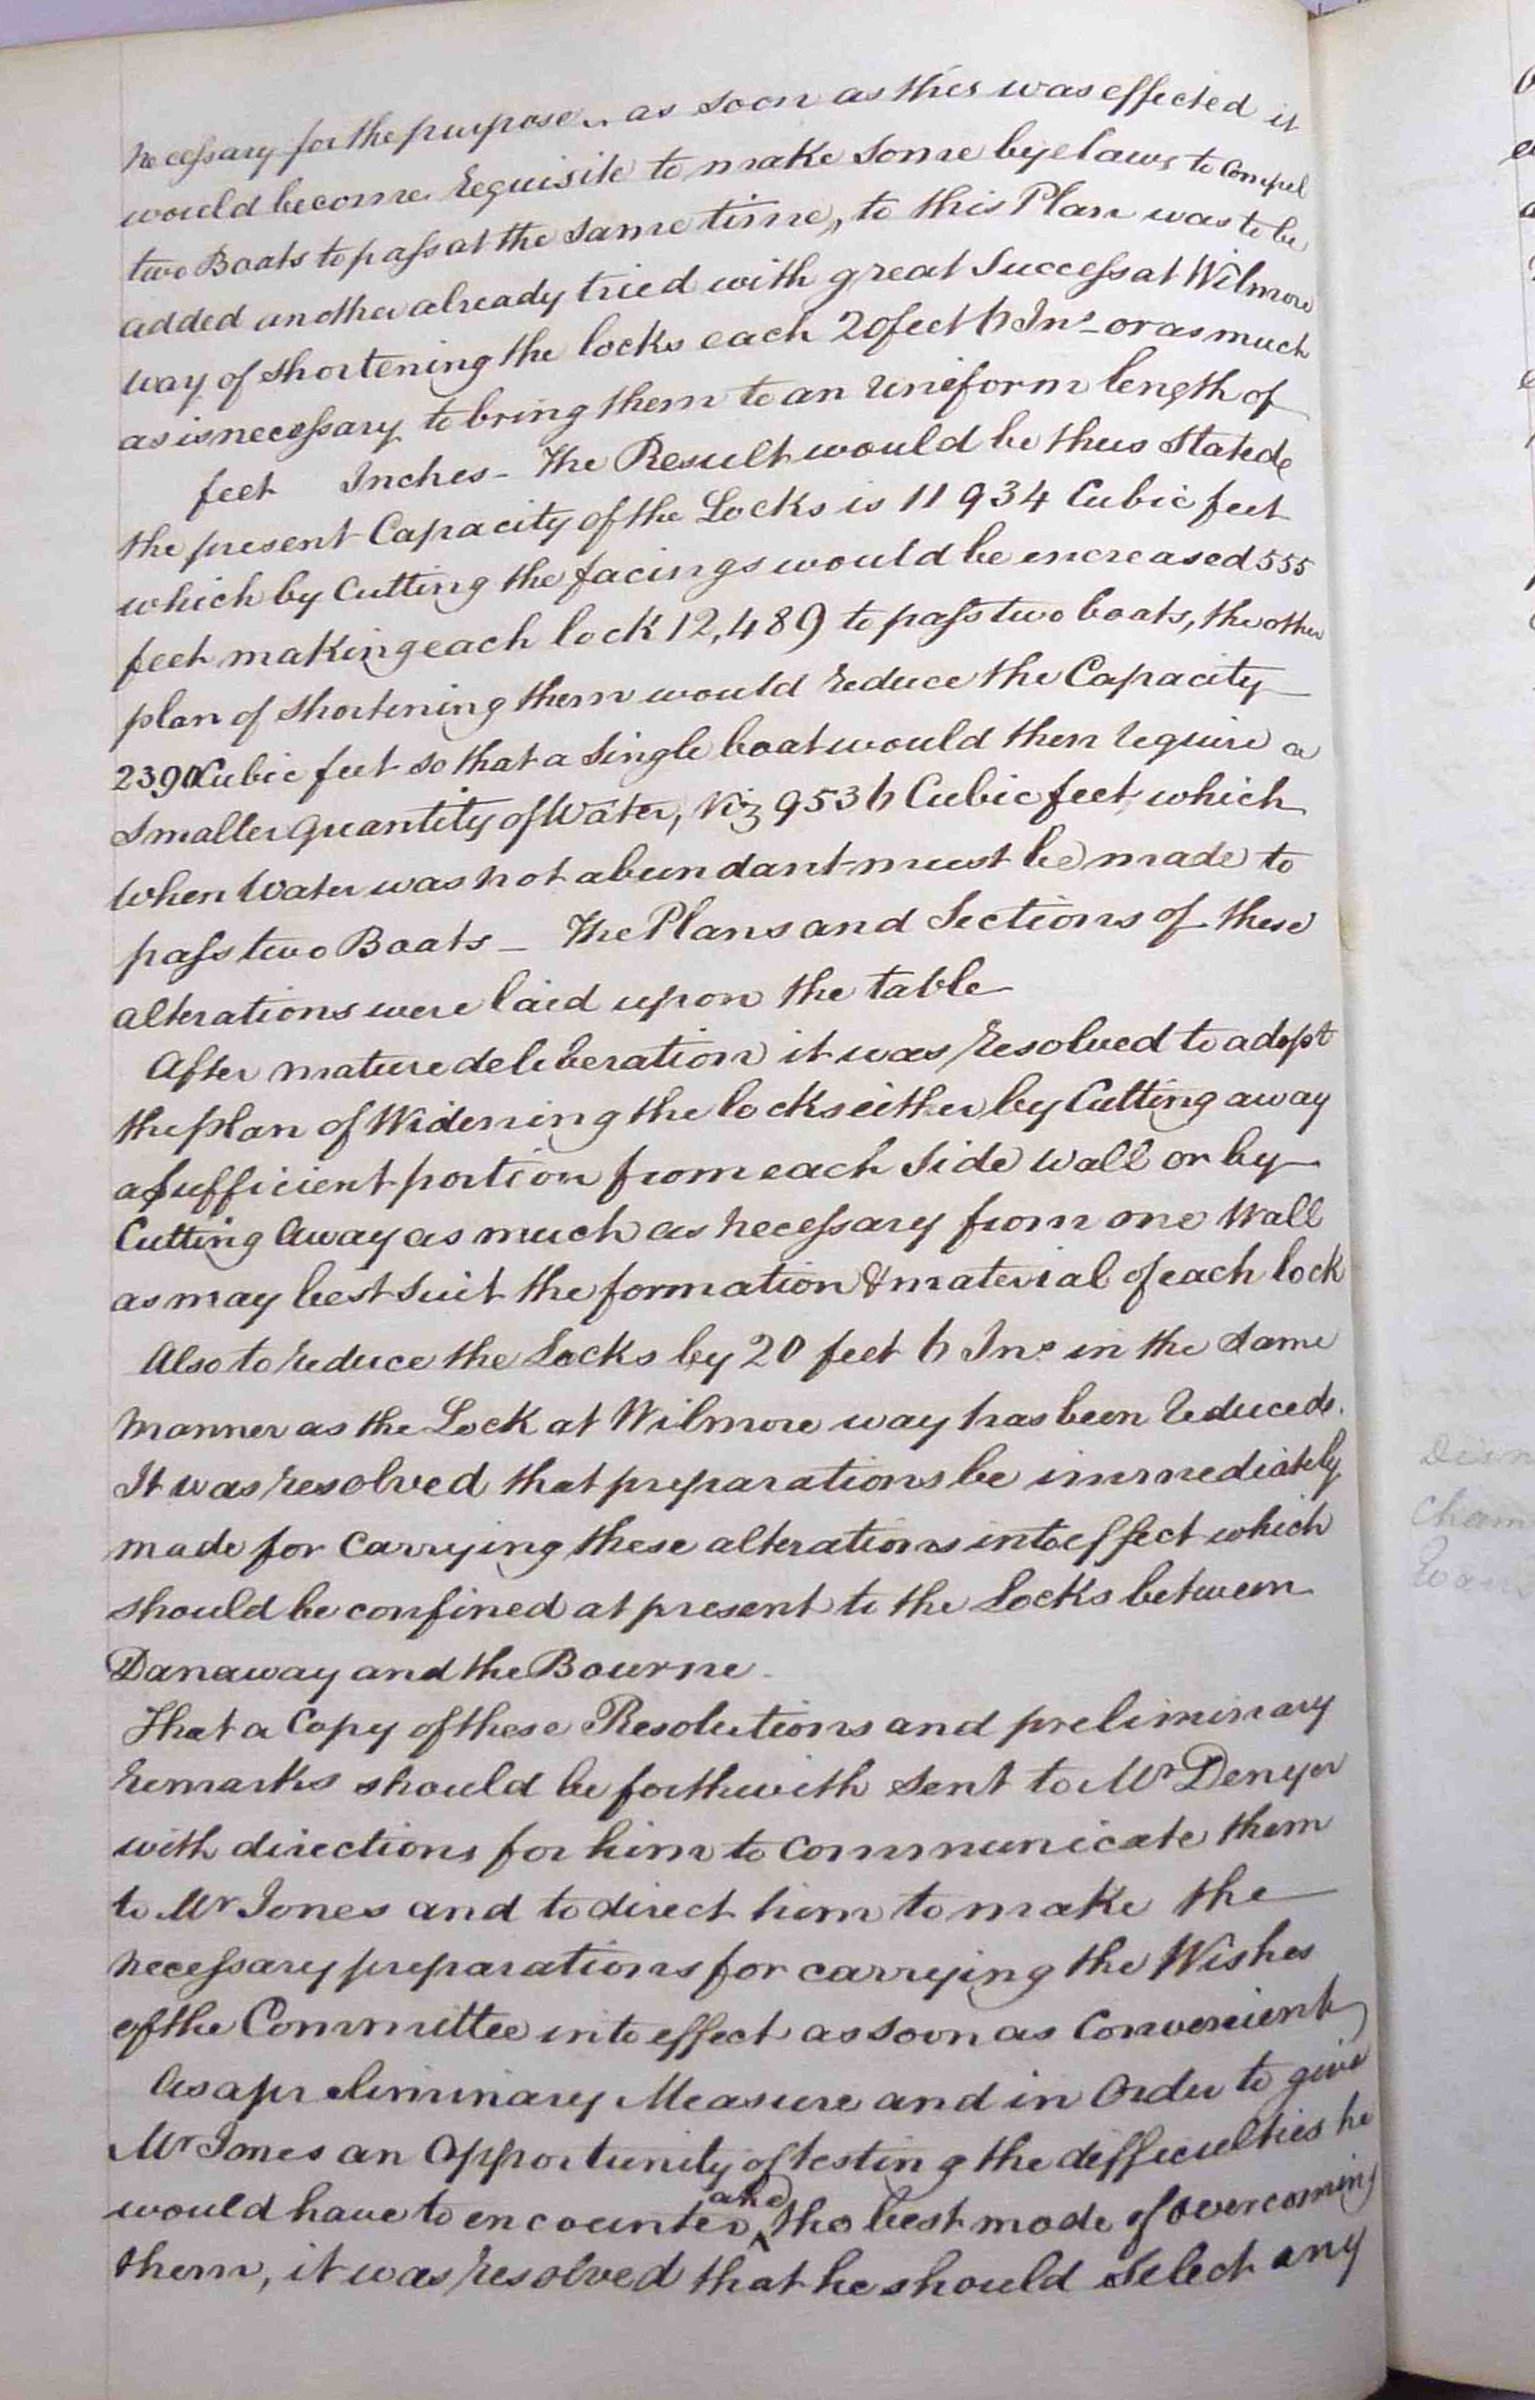 necessary for the purpose. as soon as this was effected it
would become requisite to make some bye laws to compel
two Boats to pass at the same time, to this Plan was to be
added another already tried with great Success at Wilmore
way of shortening the locks each 20 feet 6 Ins - or as much
as is necessary to bring them to an uniform length of
feet Inches - The Result would be thus Stated
the present Capacity of the Locks is 11 934 Cubic feet
which by Cutting the facings would be encreased 555
feet making each lock 12,489 to pass two boats, the other
plan of shortening them would reduce the Capacity
2390 Cubic feet so that a Single boat would then require a
Smaller quantity of Water, Viz 9536 Cubic feet which
when Water was not abundant must be made to
pass two Boats - The Plans and Sections of these
alterations were laid upon the table
After mature deliberation it was resolved to adopt
the plan of Widening the locks either by Cutting away
a sufficient portion from each Side wall or by
Cutting Away as much as necessary from one Wall
as may best suit the formation & material of each lock
Also to reduce the Locks by 20 feet 6 Ins in the same
manner as the Lock at Wilmore way has been reduced.
It was resolved that preparations be immediately
made for Carrying these alterations into effect which
should be confined at present to the Locks between
Danaway and the Bourne.
That a Copy of these Resolutions and preliminary
remarks should be forthwith sent to Mr Denyer
with directions for him to Communicate them
to Mr Jones and to direct him to make the
necessary preparations for carrying the Wishes
of the Committee into effect as soon as Convenient
As a preliminary Measure and in Order to give
Mr Jones an Opportunity of testing the difficulties he
would have to encounter and the best mode of overcoming
them, it was resolved that he should Select any